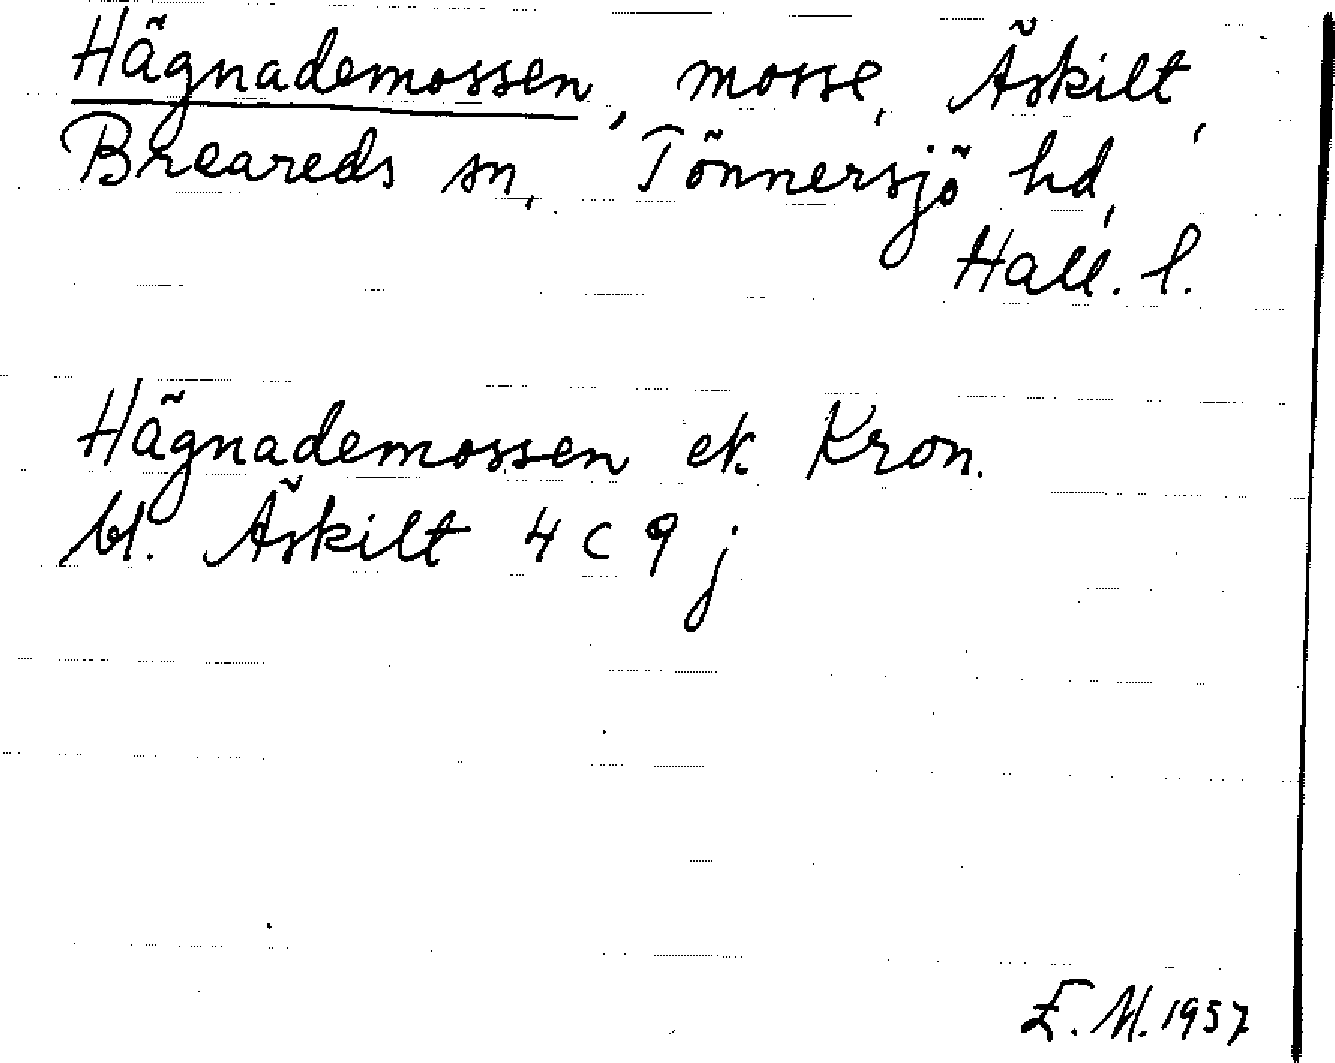 Hägnademossen, mosse, Äskilt,
Breareds sn, Tönnersjö hd,
Hall. l.
Hägnademossen ek. Kron.
bl. Äskilt 4 C 9 j
E. M. 1957